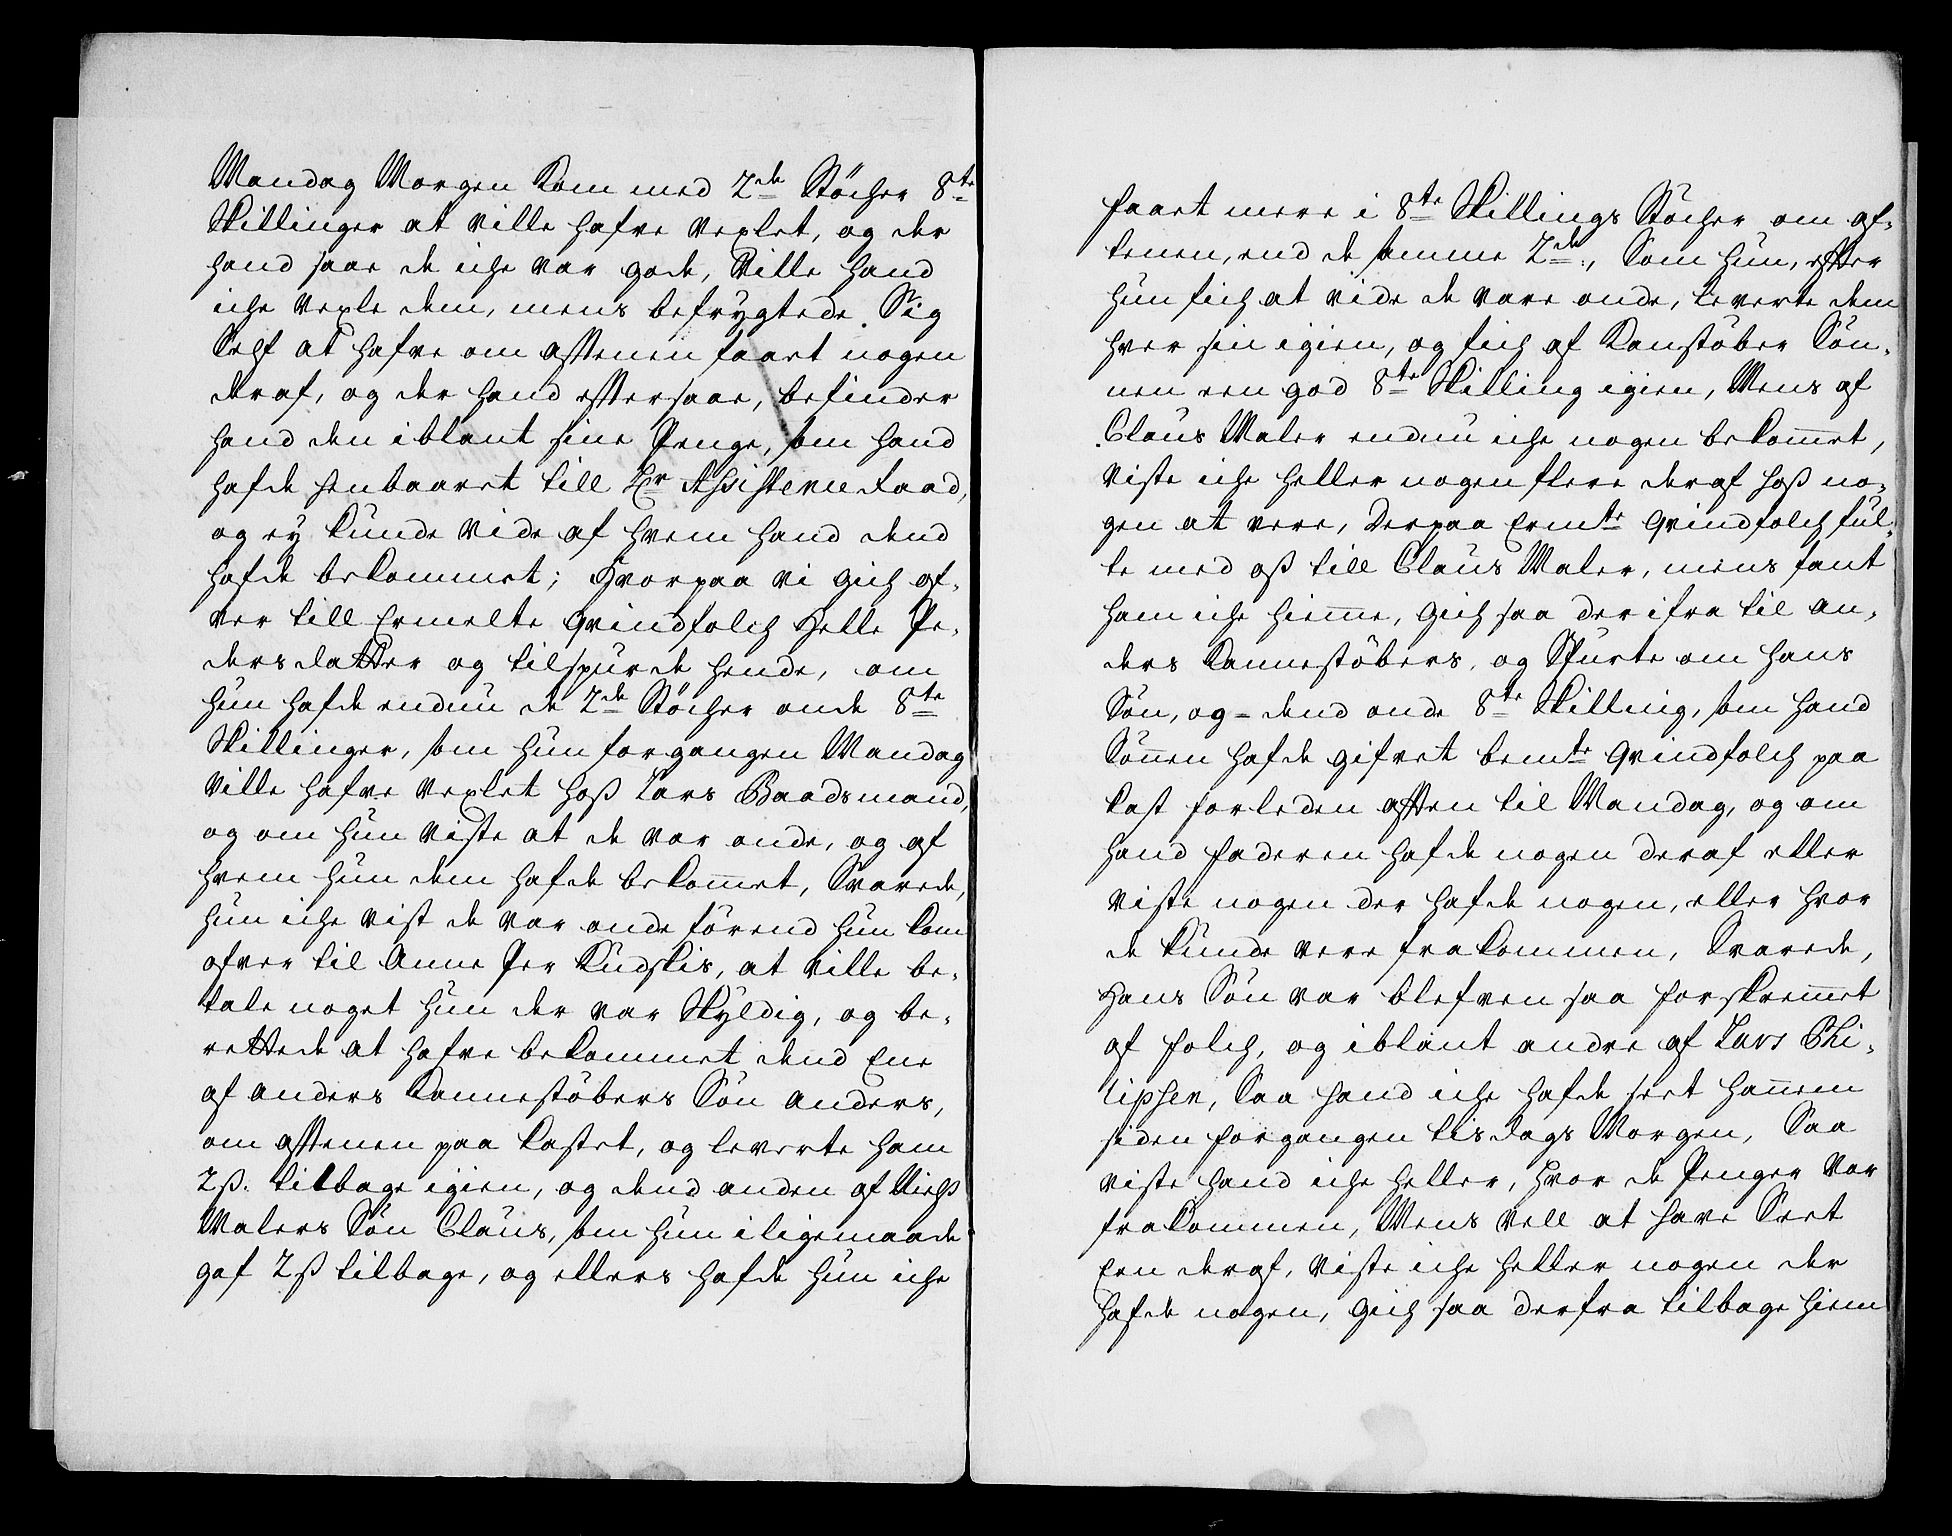 Mandag Morgen kom med 2de Støcher 8te
Skillinger at ville hafve vexlet, og der
hand saae de iche var gode, Ville hand
iche vexle dem, mens befrygtede Sig
Self at hafve om afftenen faaet nogen
deraf, og der hand efftersaae, befinder
hand den iblant sine Penge, som hand
hafde henbaaret till Hr Assistence Raad,
og ey kunde vide af hvem hand dend
hafde bekommet; Hvorpaa vi gich of-
ver till Ermelte Qvindfolch Helle Pe-
dersdatter og tilspurde hende, om
hun hafde endnu de 2de Støcher onde 8te
Skillinger, som hun forgangen Mandag
ville hafve vexlet hoß Lars Baadsmand,
og om hun viste at de var onde, og af
hvem hun dem hafde bekom̅et, Svarede,
hun iche vist de var onde førend hun kom
ofver til Anne Per Kudskis, at ville be-
tale noget hun der var Skyldig, og be-
rettede at hafve bekommet dend Ene
af Anders Kannestøbers Søn Anders,
om afftenen paa Kastet, og leverte ham
2ß. tilbage igien, og dend anden af Nielß
Malers Søn Claus, som hun iligemaade
gaf 2ß tilbage, og ellers hafde hun iche
faaet mere i 8te Skillings Støcher om af-
tenen, end de samme 2de, Som hun, effter
hun fich at vide de vare onde, leverte dem
hver sin igien, og fich af Kanstøber Søn-
nen een god 8te Skilling igien, Mens af
Claus Maler endnu iche nogen bekom̅et,
viste iche heller nogen flere deraf hoß no-
gen at vere, Derpaa Ermte Qvindfolch ful-
te med oß till Claus Maler, mens fant
ham iche hiem̅e, gich saa der ifra til An-
ders Kannestøbers, og Spurte om hans
Søn, og - dend onde 8te Skilling, som hand
Søn̅en hafde gifvet bemte Qvindfolch paa
Kast forleden afften til Mandag, og om
hand Faderen hafde nogen deraf eller
viste nogen der hafde nogen, eller hvor
de kunde vere frakommen, Svarede,
Hans Søn var blefven saa forskrem̅et
af folch, og iblant andre af Lars Phi-
lipsen, Saa hand iche hafde seet han̅em
siden forgangen tisdags Morgen, Saa
viste hand iche heller, hvor de Penger var
frakommen, Mens vell at have Seet
Een deraf, viste iche heller nogen der
hafde nogen, gich saa derfra tilbage hiem